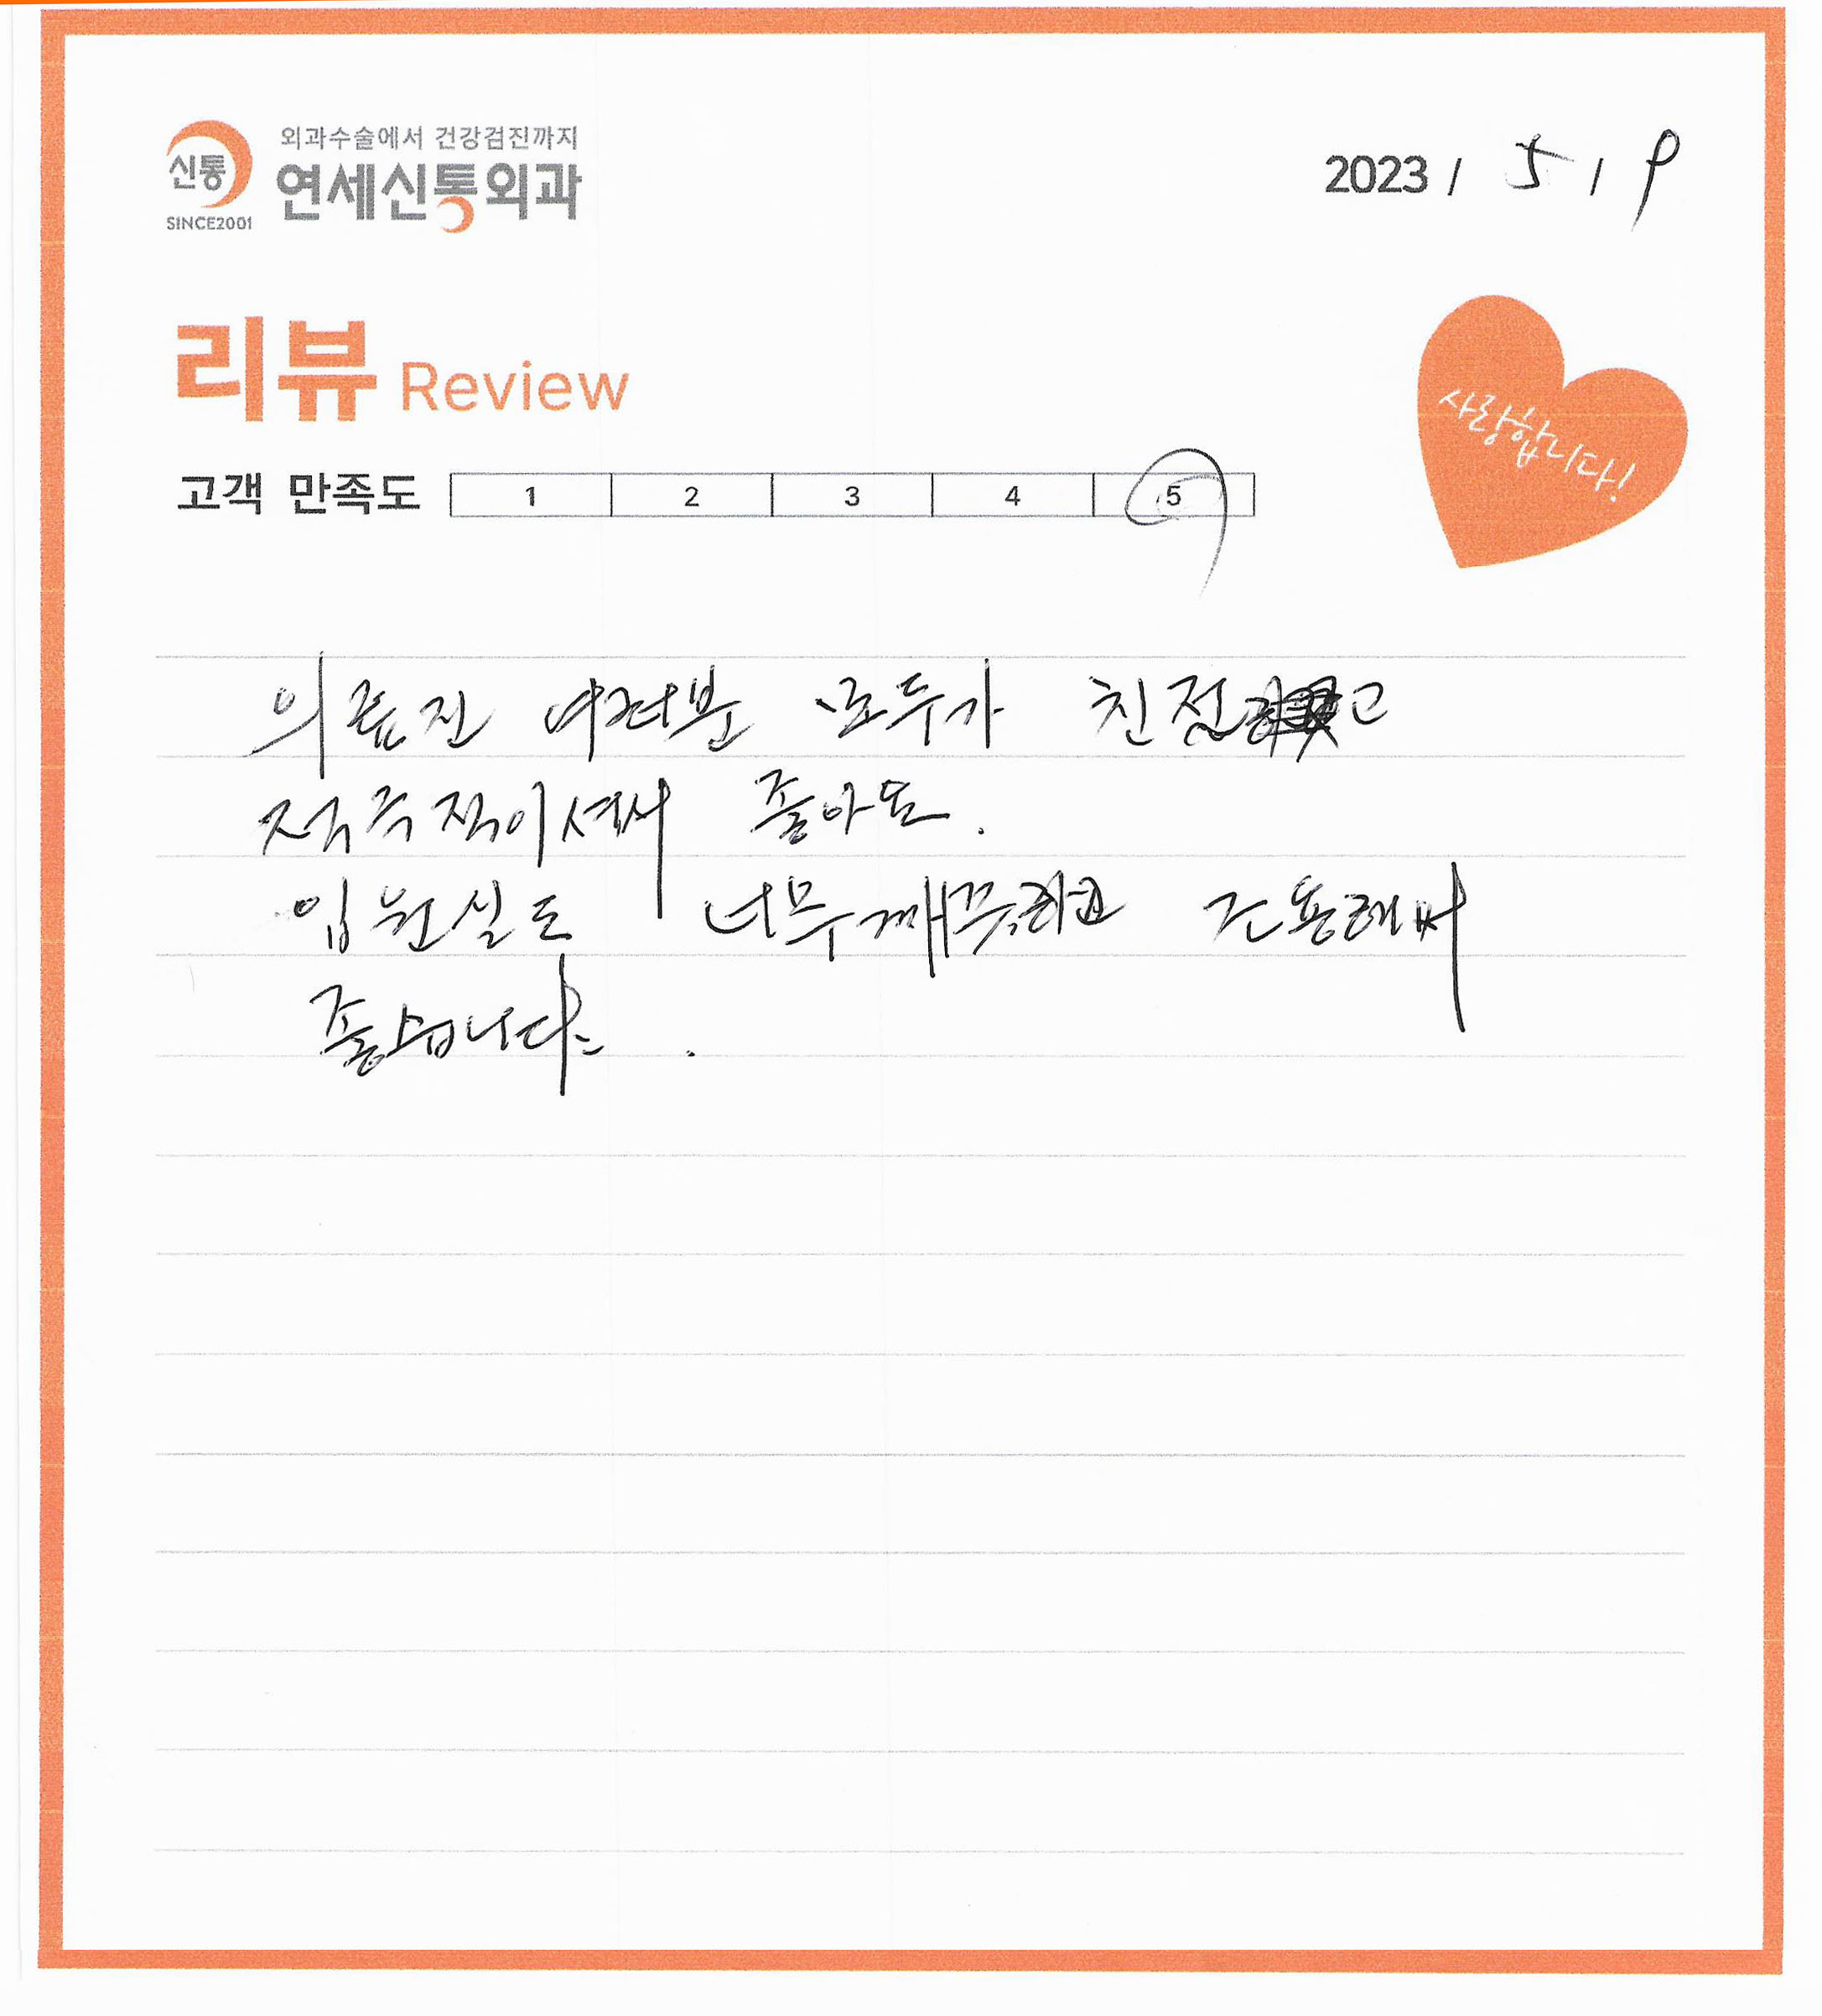 외과수술에서 건강검진까지
신통
연세신통외과
SINCE2001
2023 / 5 / 9
리뷰 Review
사랑합니다!
고객 만족도 1 2 3 4 5
의료진 여러분 모두가 친절 고
적극적이셔서 좋아요.
입원실도 너무 깨끗하고 조용해서
좋습니다.